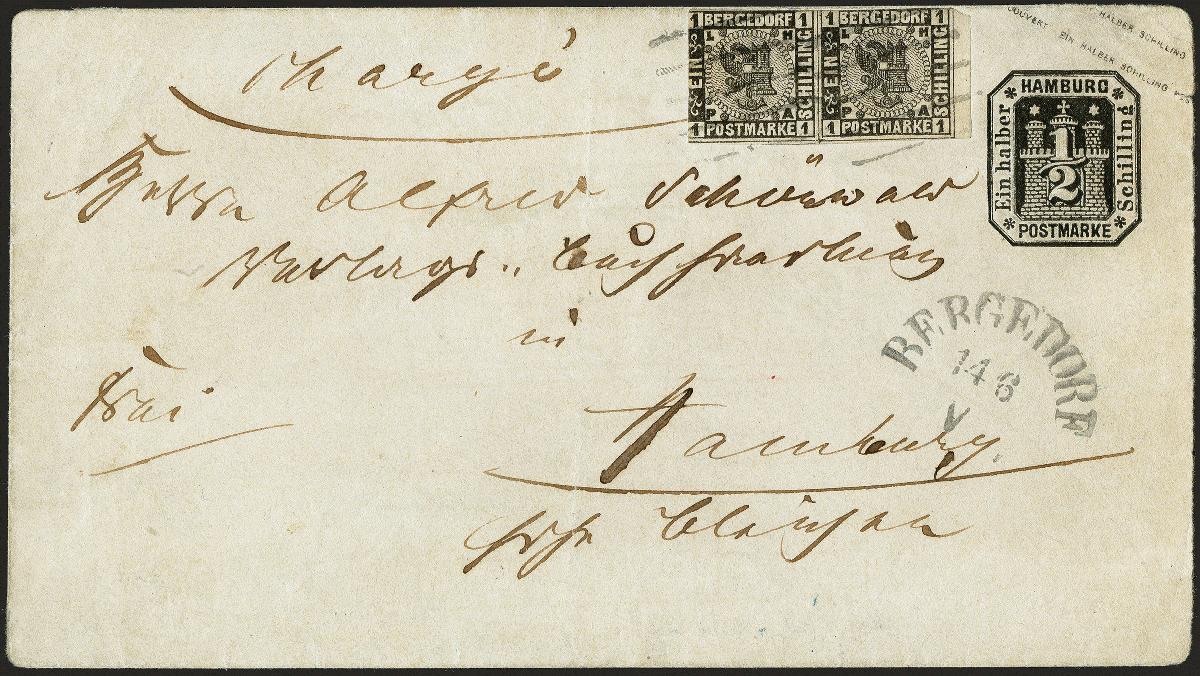 Chargé
1 BERGEDORF 1
L H
EIN
SCHILLING
P A
1 POSTMARKE 1
1 BERGEDORF 1
L H
EIN
SCHILLING
P A
1 POSTMARKE 1
COUVERT EIN HALBER SCHILLING
HALBER SCHILLING
HAMBURG
Ein halber
1/2
Schilling
POSTMARKE
Herrn Alfred Schönwald
Verlags-Buchhandlung
in
frei
Hamburg
hohe Bleichen
BERGEDORF
14 6